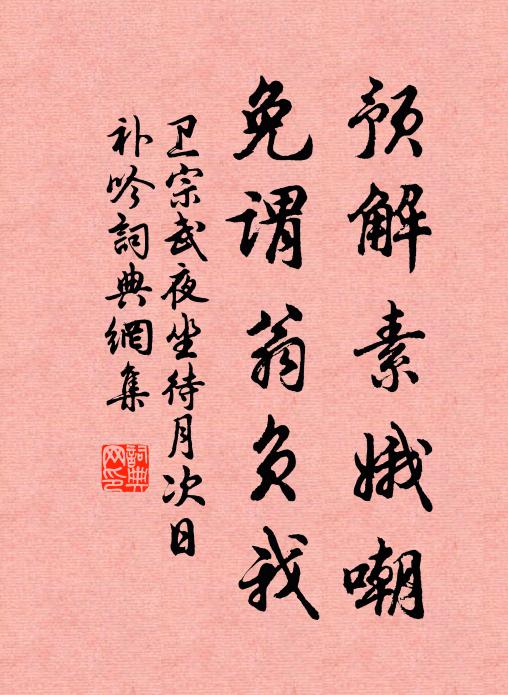 预解素娥嘲
免谓翁负我
卫宗武夜坐待月次日
补吟詞典網集
詞典
网印